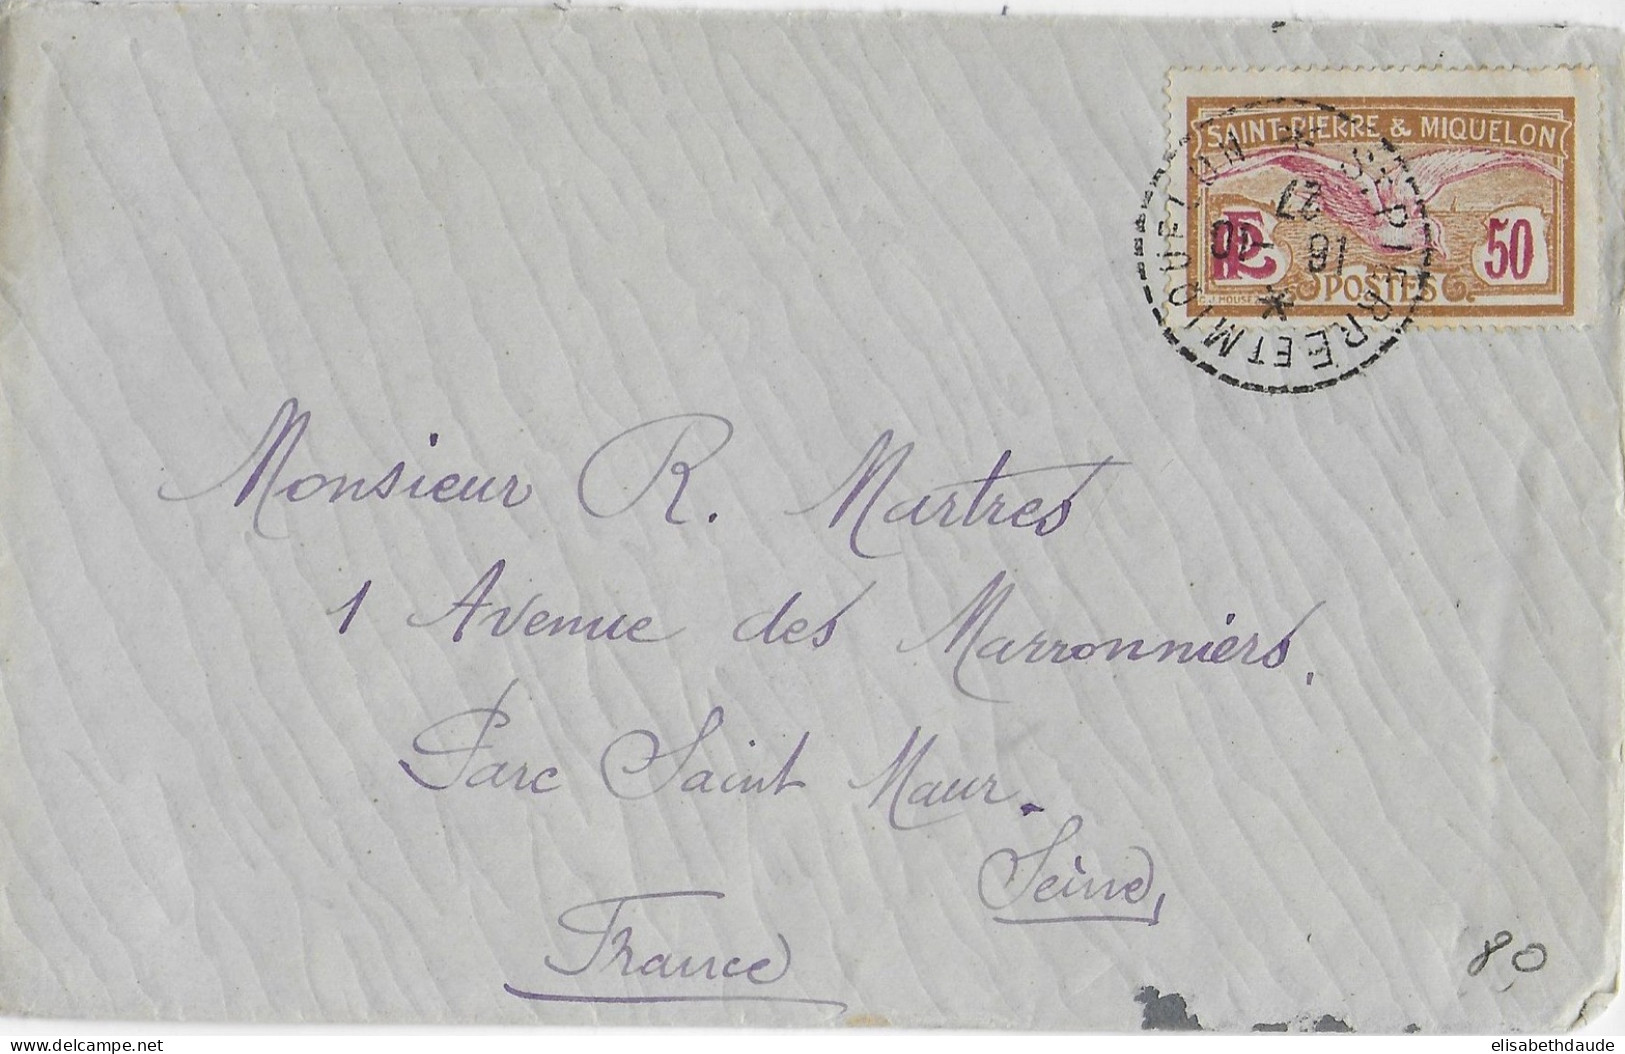 SAINT-PIERRE & MIQUELON
50
POSTES
ST PIERRE ET MIQUELON
16
10
27
Monsieur R. Martres
1 Avenue des Marronniers,
Parc Saint Maur.
Seine,
France
80
www.delcampe.net
elisabethdaude